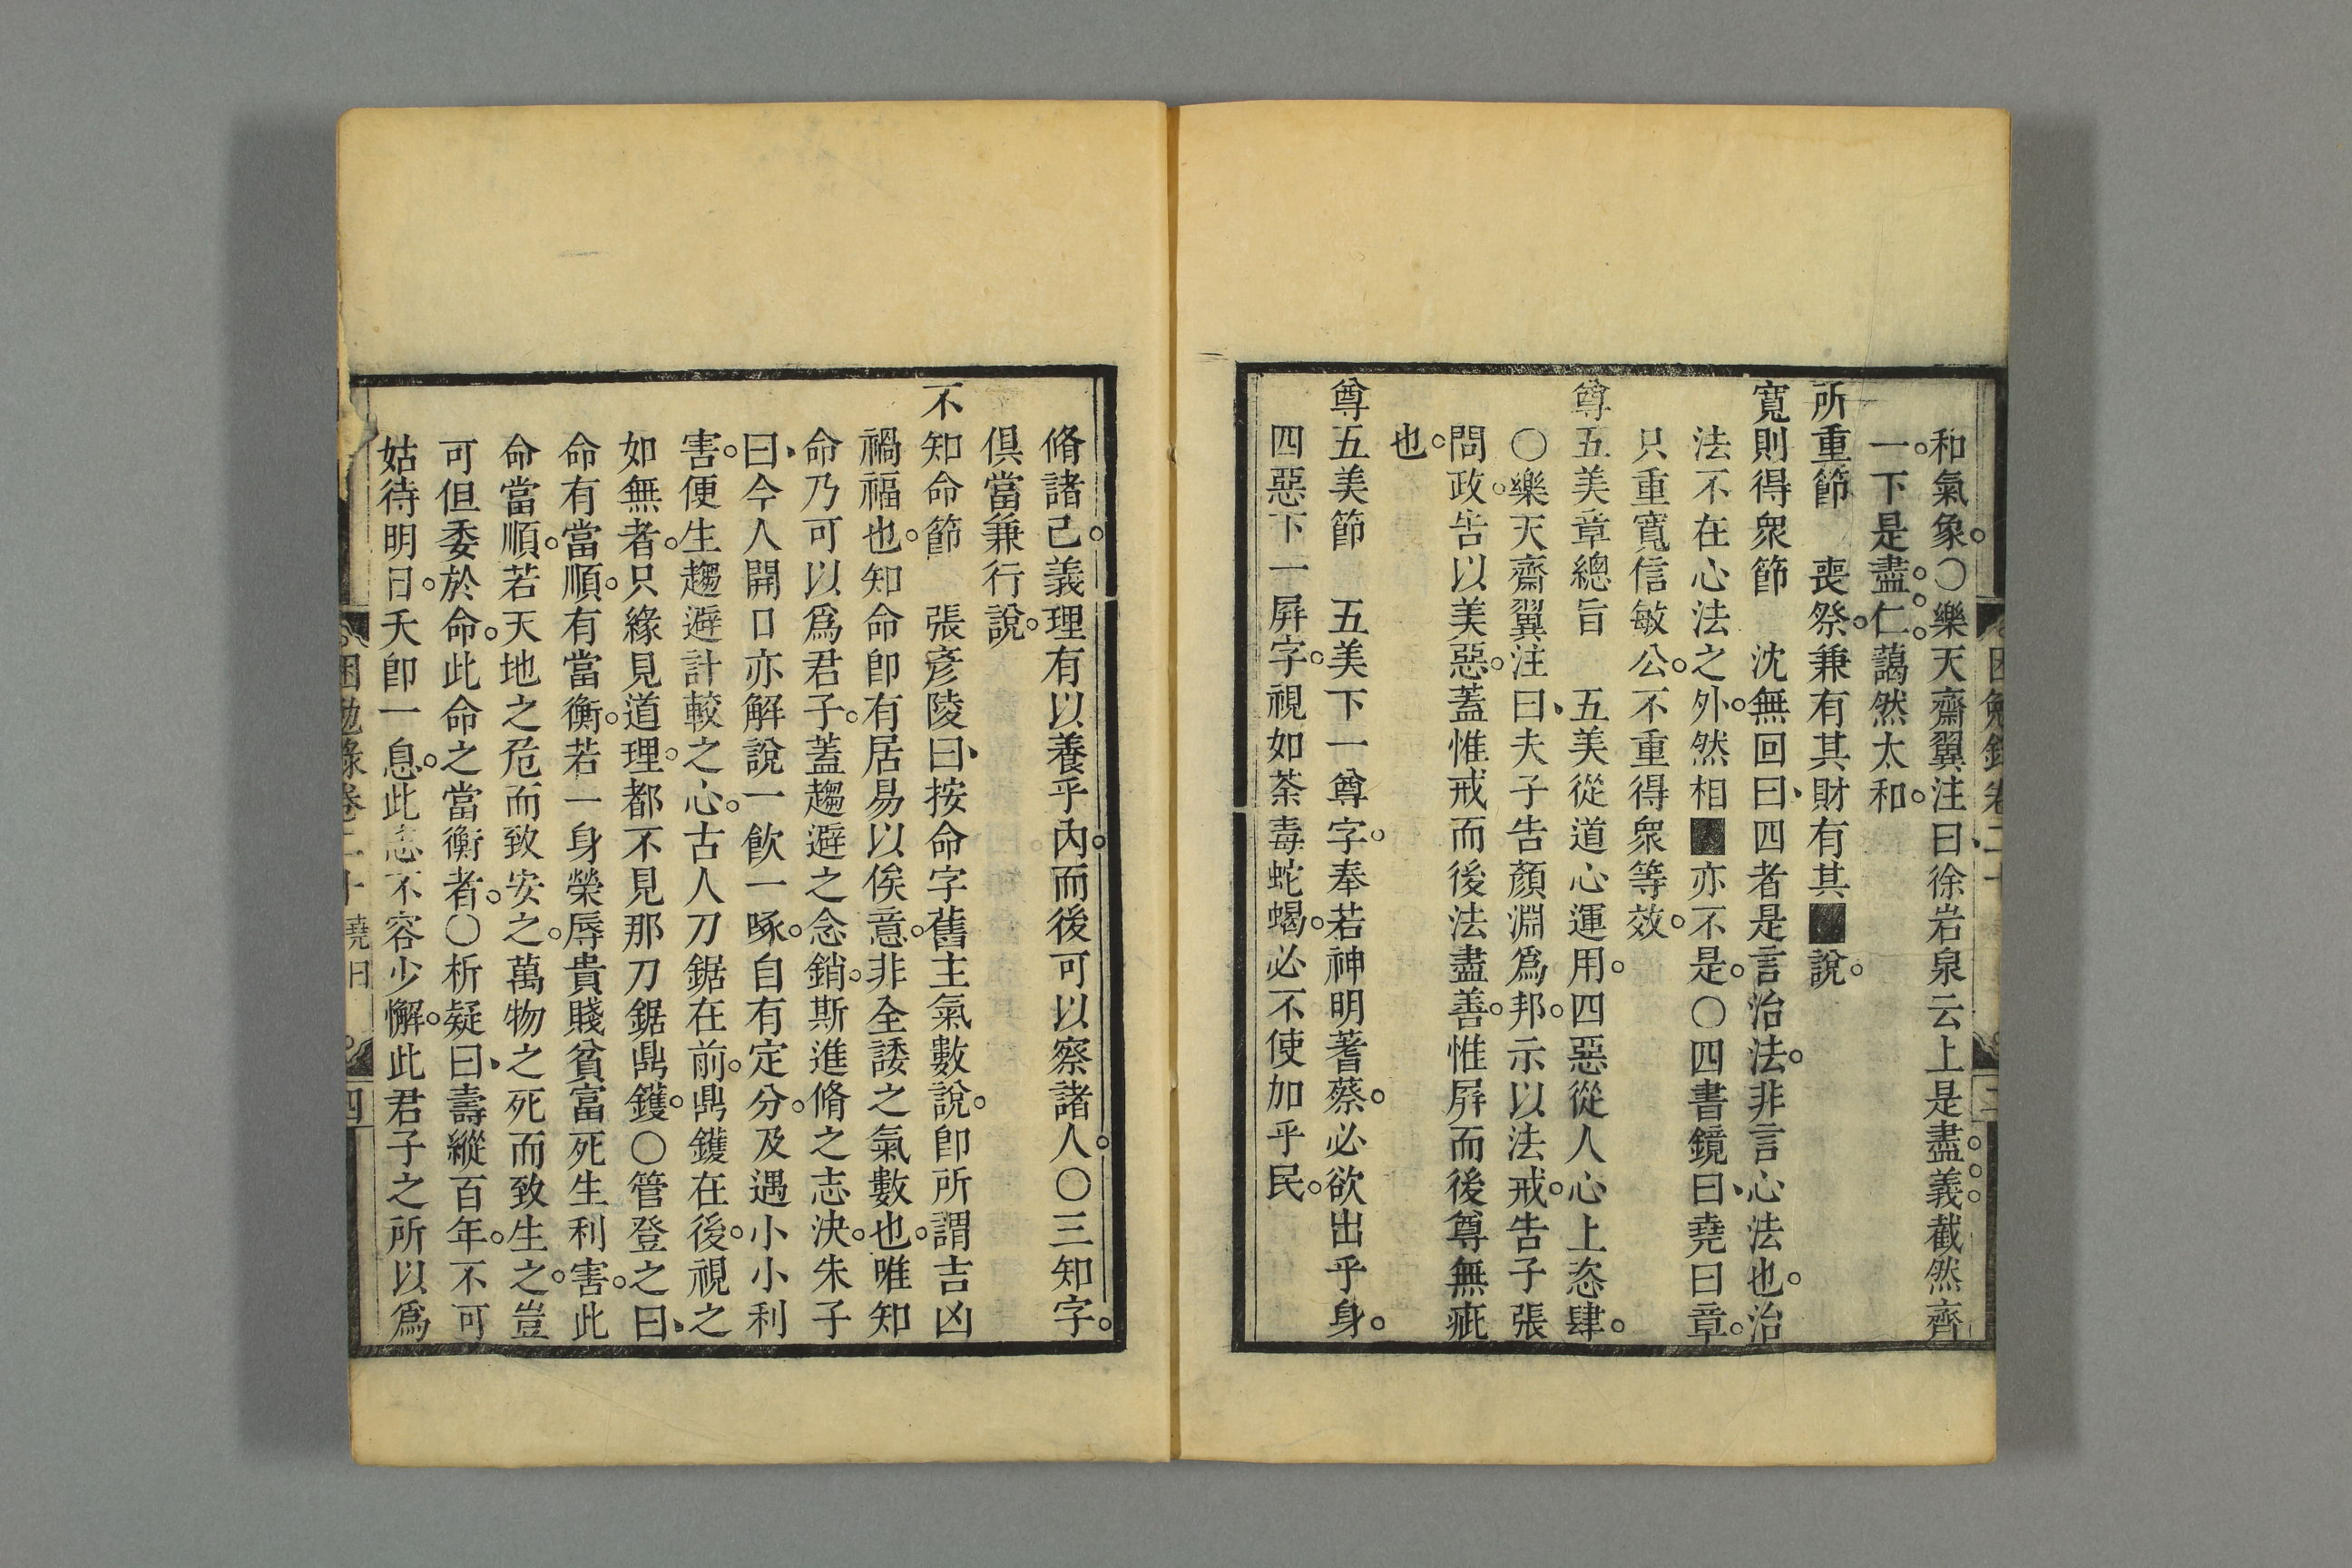 和氣象。〇樂天齋翼注曰徐岩泉云上是盡義截然齊
一。下是盡仁藹然太和。
所重節　喪祭。兼有其財有其■說。
寬則得衆節　沈無回曰、四者是言治法。非言心法也。治
法不在心法之外。然相■亦不是。〇四書鏡曰、堯曰章。
只重寬信敏公。不重得衆等效。
尊五美章總旨　五美從道心運用。四惡從人心上恣肆。
〇樂天齋翼注曰、夫子告顏淵爲邦。示以法戒。告子張
問政。告以美惡。蓋惟戒而後法盡善。惟屛而後尊無疵
也。
尊五美節　五美下一尊字。奉若神明蓍蔡。必欲出乎身。
四惡下一屛字。視如荼毒蛇蝎。必不使加乎民。
困勉錄卷二十
脩諸己。義理有以養乎內。而後可以察諸人。〇三知字。
俱當兼行說。
不知命節　張彥陵曰、按命字舊主氣數說。卽所謂吉凶
禍福也。知命卽有居易以俟意。非全諉之氣數也。唯知
命乃可以爲君子。蓋趨避之念銷。斯進脩之志決。朱子
曰、今人開口亦解說一飮一啄。自有定分。及遇小小利
害。便生趨避計較之心。古人刀鋸在前。鼎鑊在後。視之
如無者。只緣見道理。都不見那刀鋸鼎鑊。〇管登之曰、
命有當順。有當衡。若一身榮辱貴賤貧富死生利害。此
命當順。若天地之危而致安之。萬物之死而致生之。豈
可但委於命。此命之當衡者。〇析疑曰、壽縱百年。不可
姑待明日。夭卽一息。此志不容少懈。此君子之所以爲
困勉錄卷二十　堯曰　四